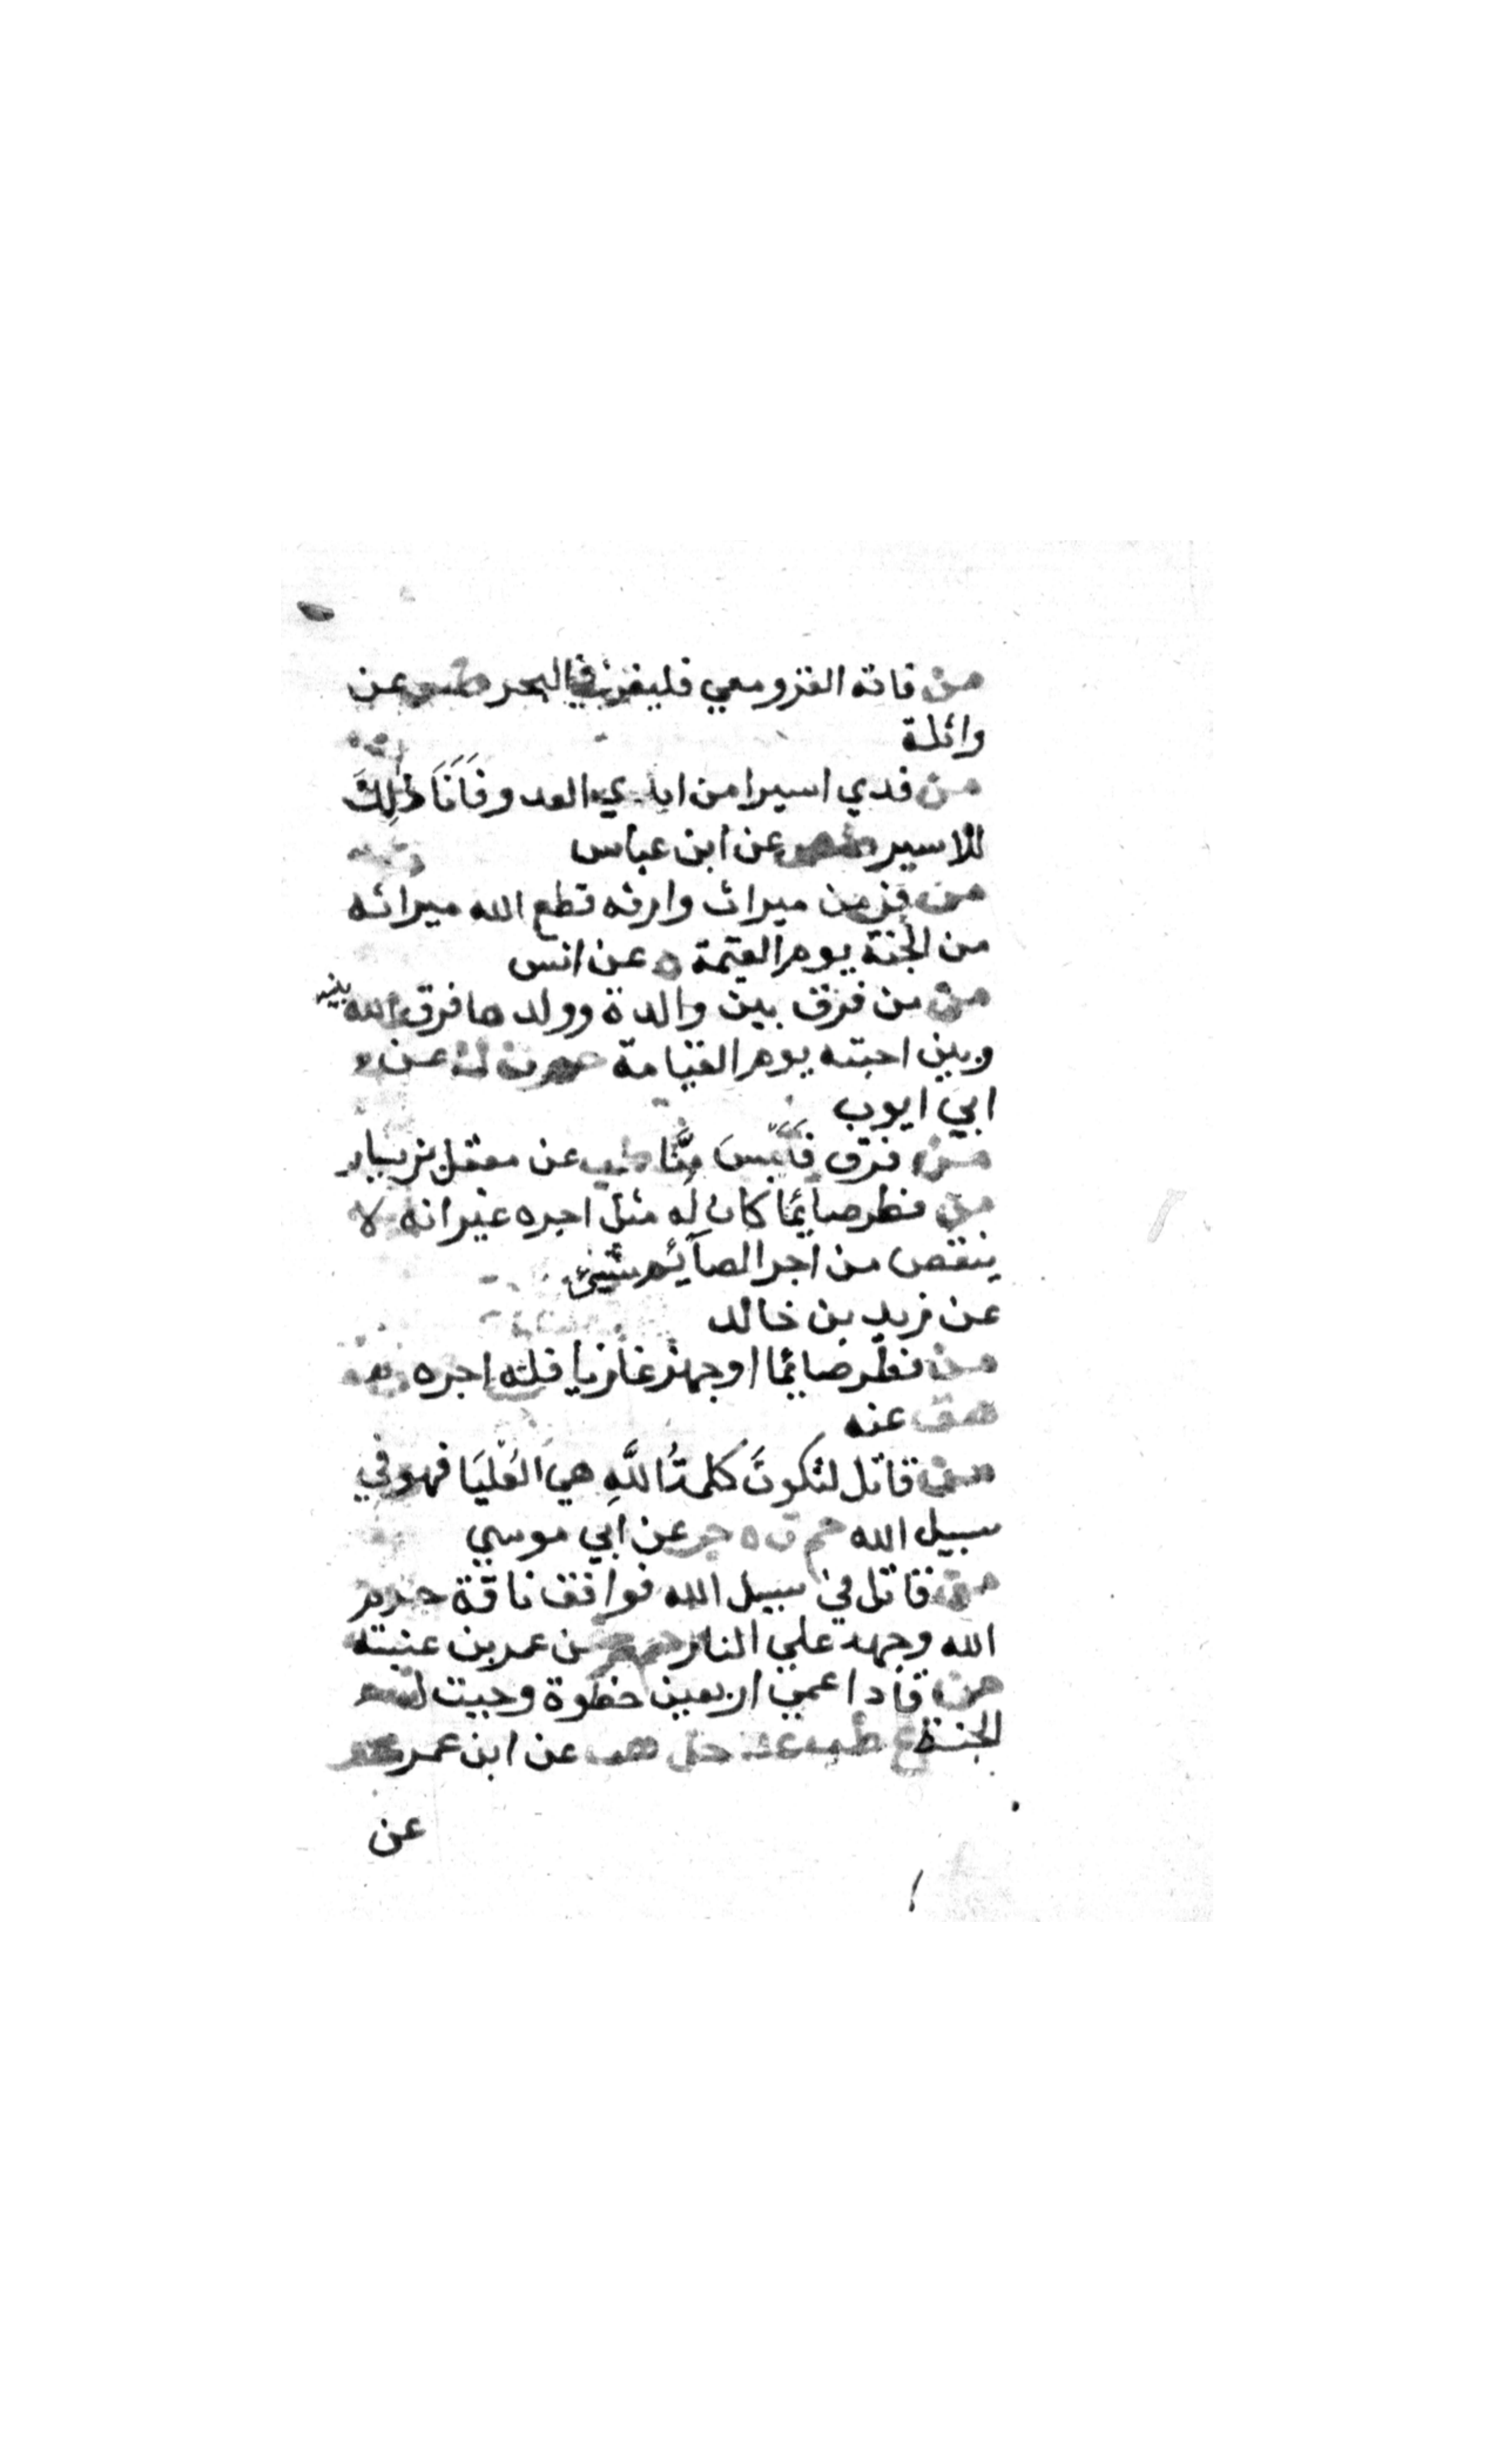 من فاته الغزو معي فليغز في البحر طس عن
واثلة
من فدي اسيرا من ايدي العدو فَاَنَا ذٰلِكَ
للاسير طص عن ابن عباس
من فر من ميراث وارثه قطع الله ميراثه
من الجنة يوم القيمة ه عن انس
من من فرق بين والدة وولدها فرق الله بينه
وبين احبته يوم القيامة حم ت ك عن
ابي ايوب
من فرق فَلَيْسَ مِنَّا طب عن معقل بن يسار
من فطر صايمًا كان له مثل اجره غير انه لا
ينقص من اجر الصآئم شيئ
عن زيد بن خالد
من فطر صايمًا او جهز غازيا فله اجره
هق عنه
من قاتل لتكونَ كلمةُ اللَّهِ هيَ العُلْيَا فهو في
سبيل الله حم ق ه عن ابي موسي
من قاتل في سبيل الله فواق ناقة حرم
الله وجهه علي النار حم عن عمر بن عنبسة
من قاد اعمي اربعين خطوة وجبت له
الجنة ع طب عد حل هب عن ابن عمر عد
عن